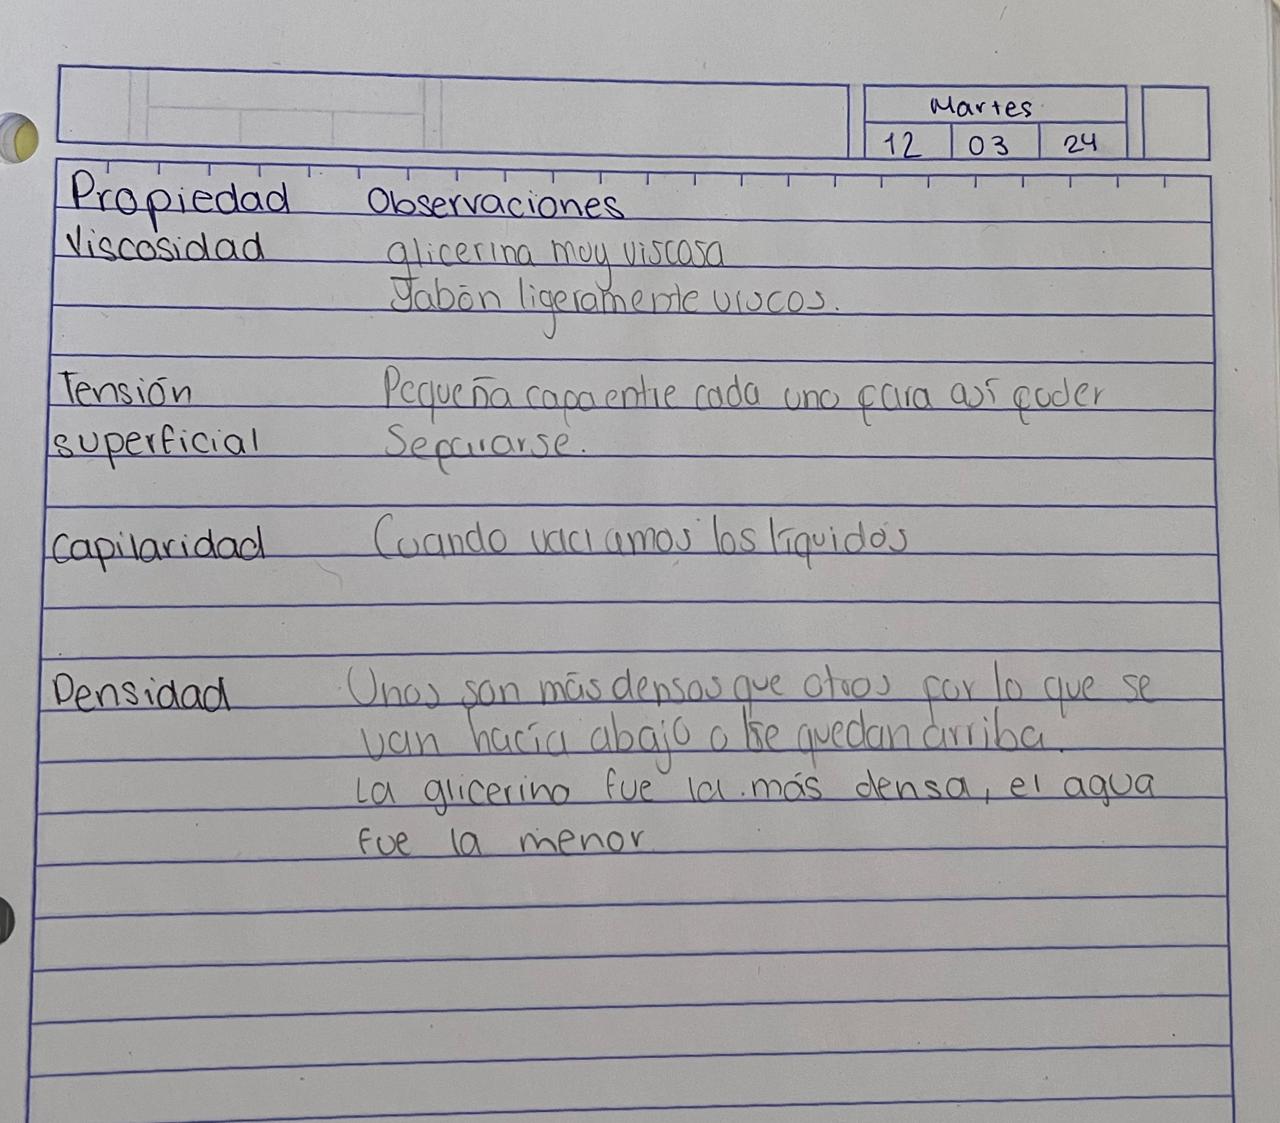 Martes
12 03 24
Propiedad Observaciones
Viscosidad glicerina muy viscosa
Jabón ligeramente viscos.
Tensión Pequeña capa entre cada uno para así poder
superficial Separarse.
Capilaridad Cuando vaciamos los líquidos
Densidad Unos son más densos que otros por lo que se
van hacía abajo o se quedan arriba.
La glicerina fue la más densa, el agua
fue la menor